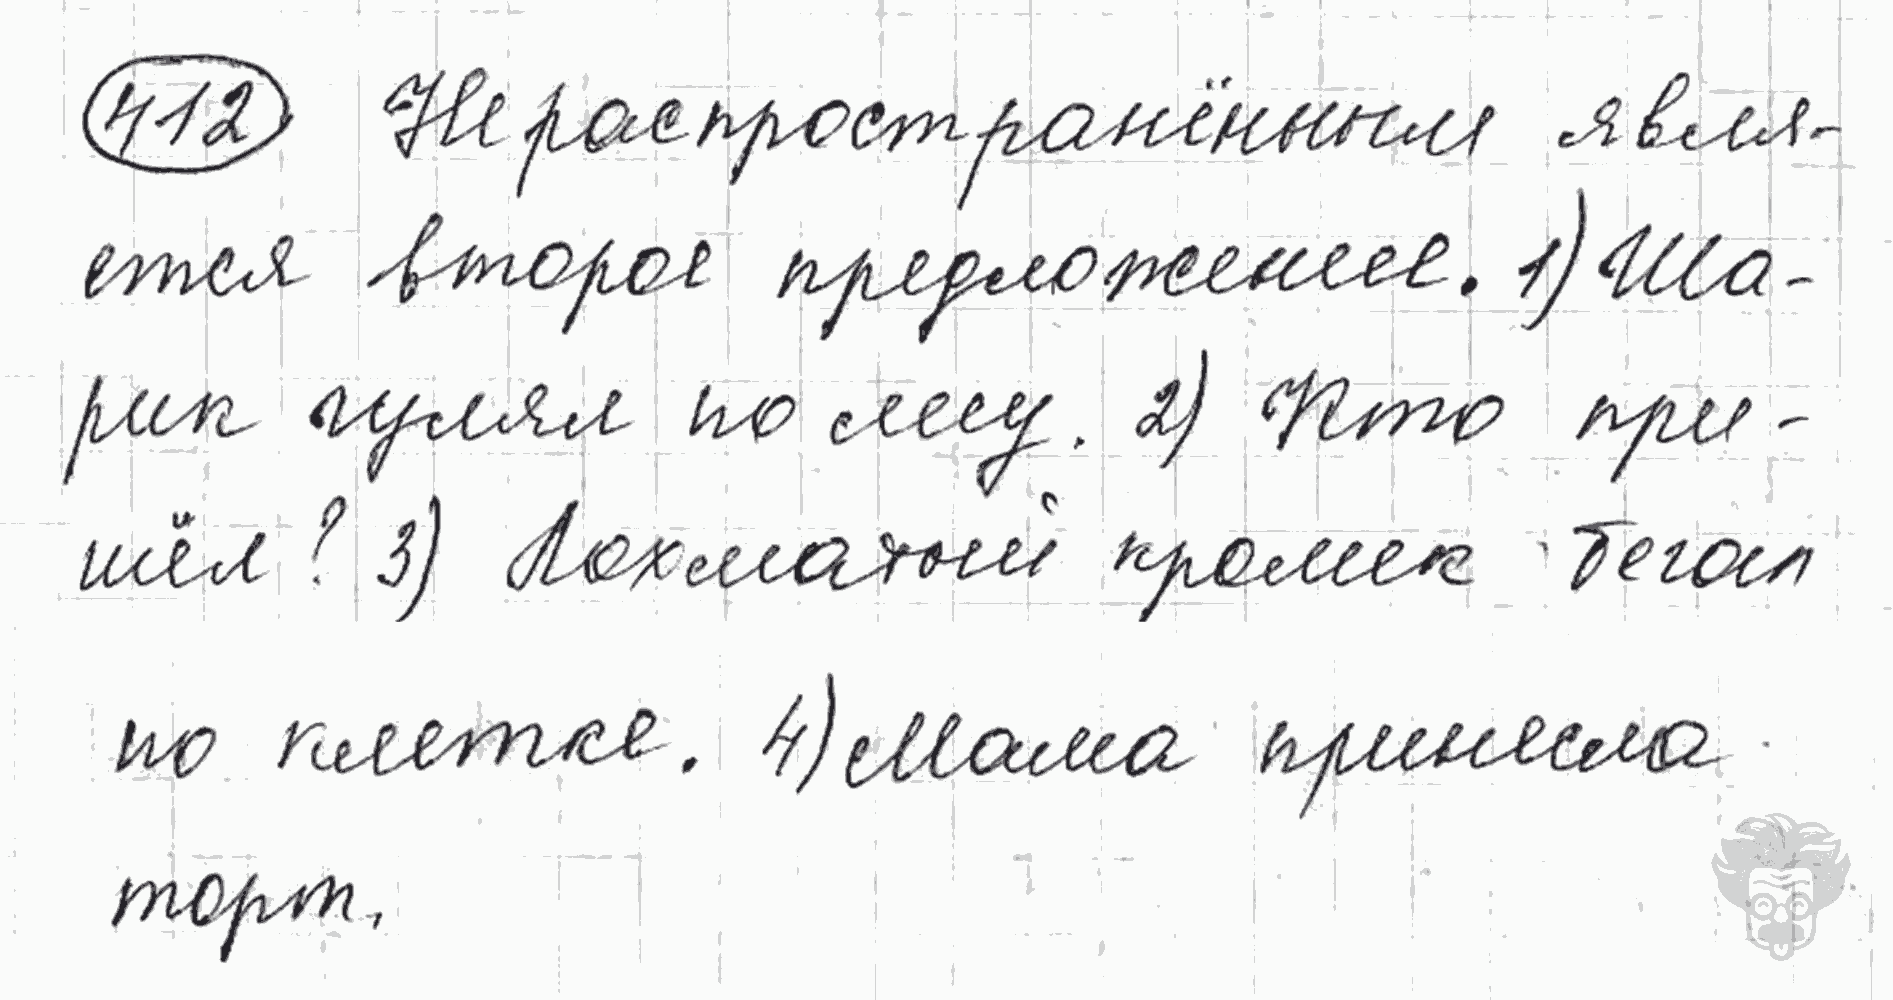 412 Нераспространённым явля-
ется второе предложение. 1) Ша-
рик гулял по лесу. 2) Кто при-
шёл? 3) Лохматый кролик бегал
по клетке. 4) Мама принесла
торт.